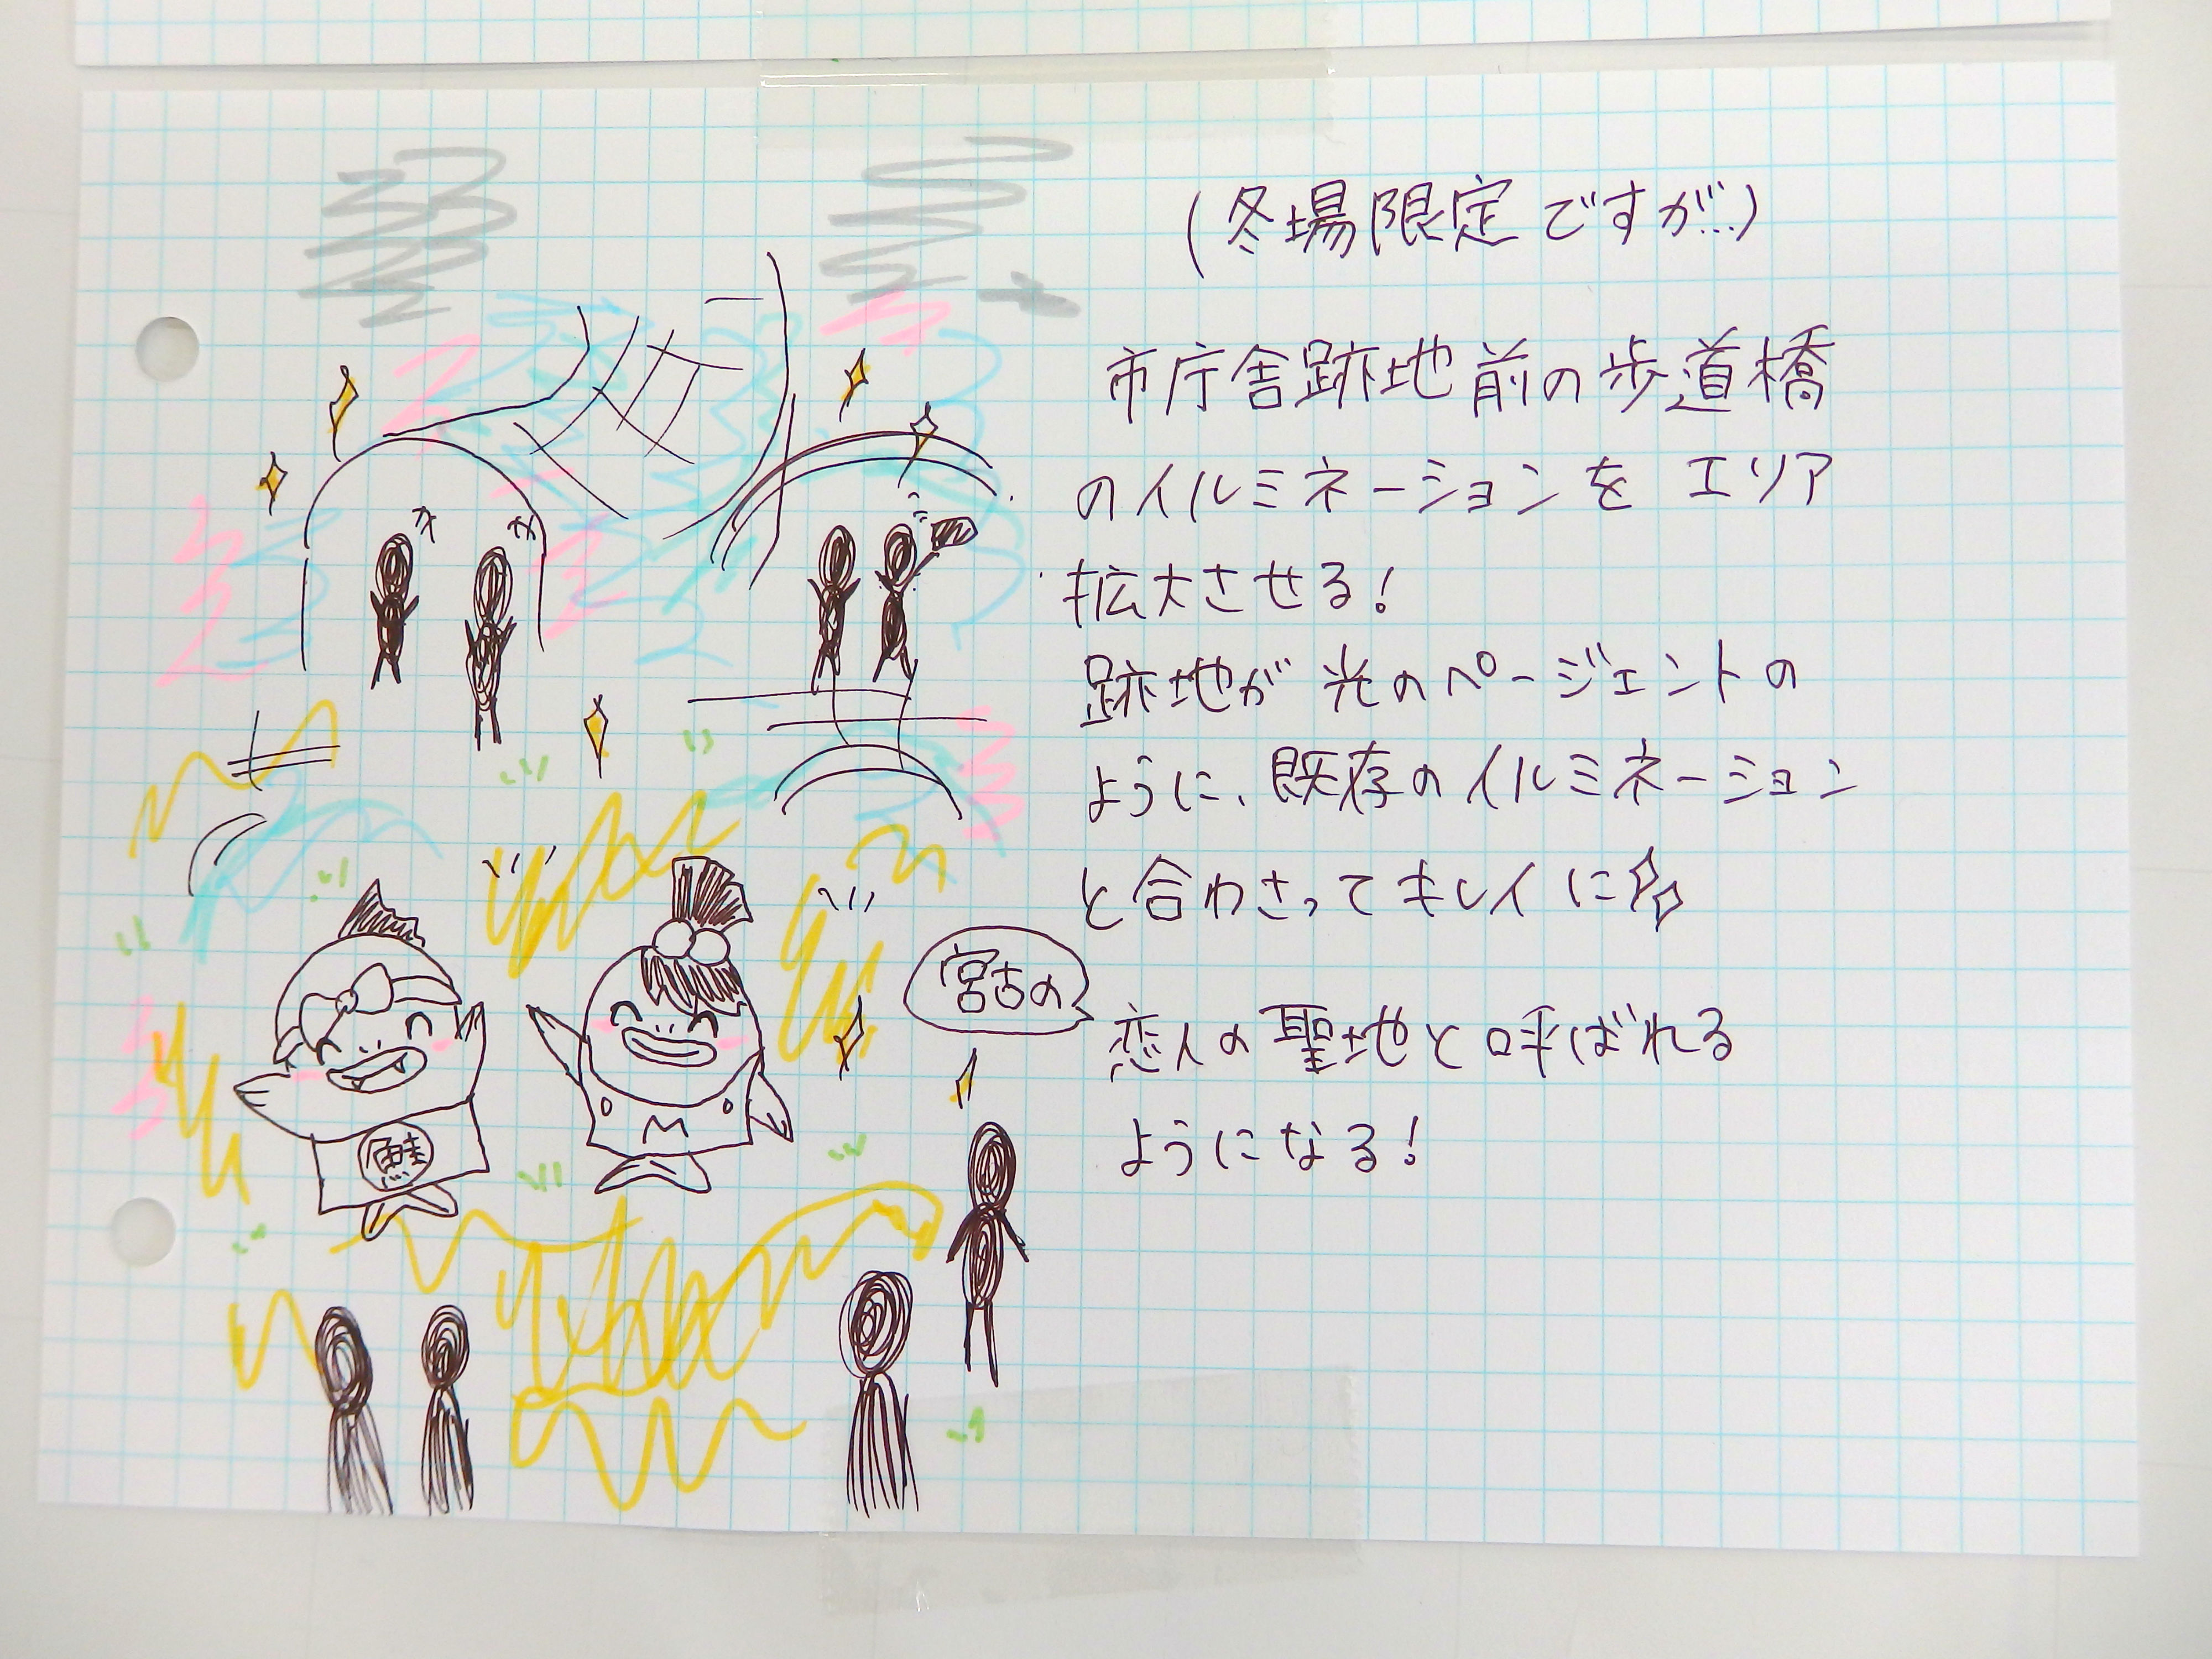 (冬場限定ですが…)
市庁舎跡地前の歩道橋
のイルミネーションを エリア
拡大させる!
跡地が 光のページェントの
ように、既存のイルミネーション
と合わさってキレイに
宮古の
恋人の聖地と呼ばれる
ようになる!
鮭
M